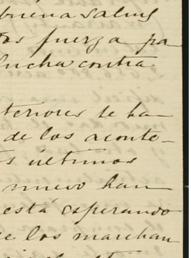 buena salud
fuerza pa
lucha contra
teriores se han
de los aconte-
s últimos
nuevo han
está esperando
e los marchan